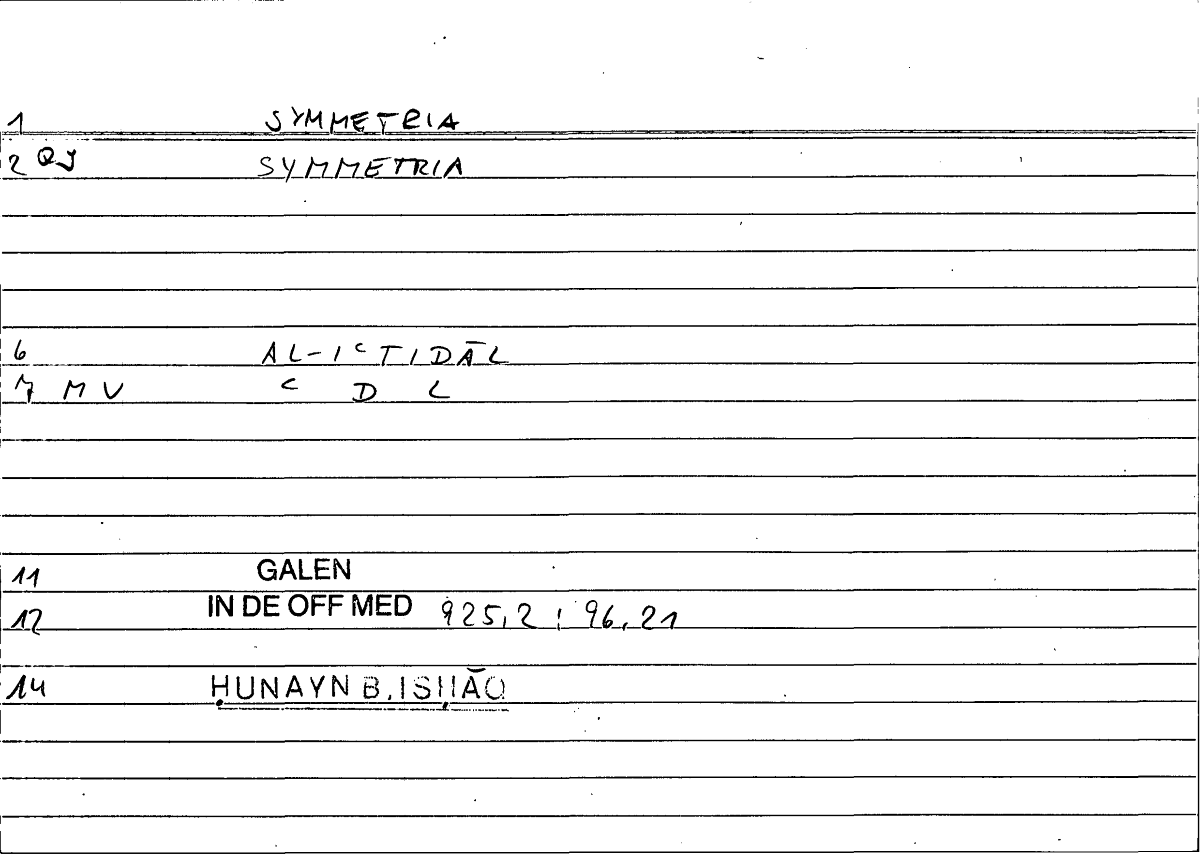 1 SYMMETRIA
2 QJ SYMMETRIA
6 AL-IʿTIDĀL
7 MV ʿ D L
11 GALEN
12 IN DE OFF MED 925,2 ; 96,21
14 ḤUNAYN B. ISḤĀQ